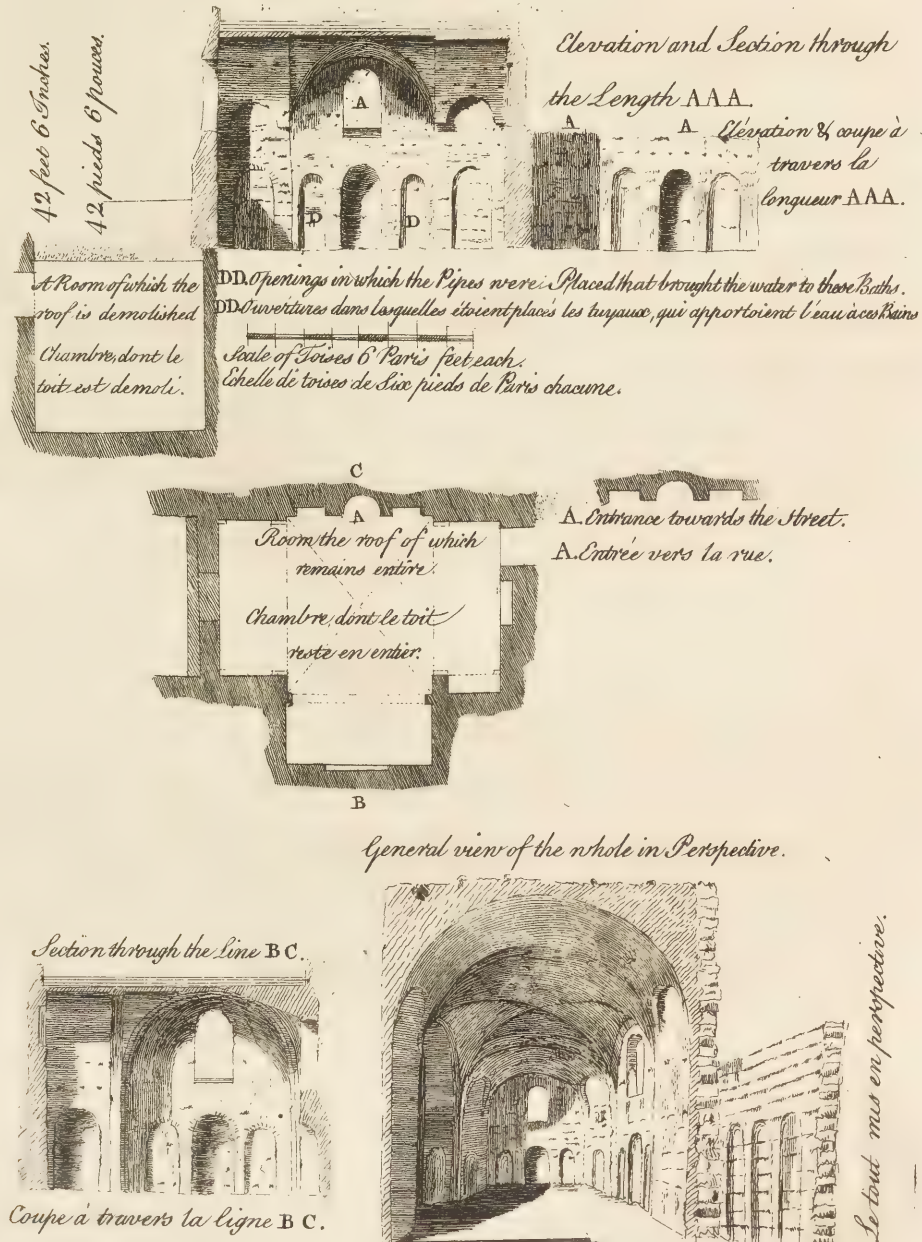 42 feet 6 Inches.
42 pieds 6 pouces.
Elevation and Section through
the Length AAA.
Elévation & coupe à
travers la
longueur AAA.
A
A
A
D
D
A Room of which the
roof is demolished
Chambre, dont le
toit est demoli.
DD. Openings in which the Pipes were Placed that brought the water to these Baths.
DD. Ouvertures dans lesquelles étoient placés les tuyaux, qui apportoient l'eau a ces Bains
Scale of Toises 6 Paris feet each.
Echelle de toises de Six pieds de Paris chacune.
C
A
Room the roof of which
remains entire.
Chambre, dont le toit
reste en entier.
B
A. Entrance towards the Street.
A. Entrée vers la rue.
General view of the whole in Perspective.
Section through the Line BC.
Coupe á travers la ligne BC.
Le tout mis en perspective.